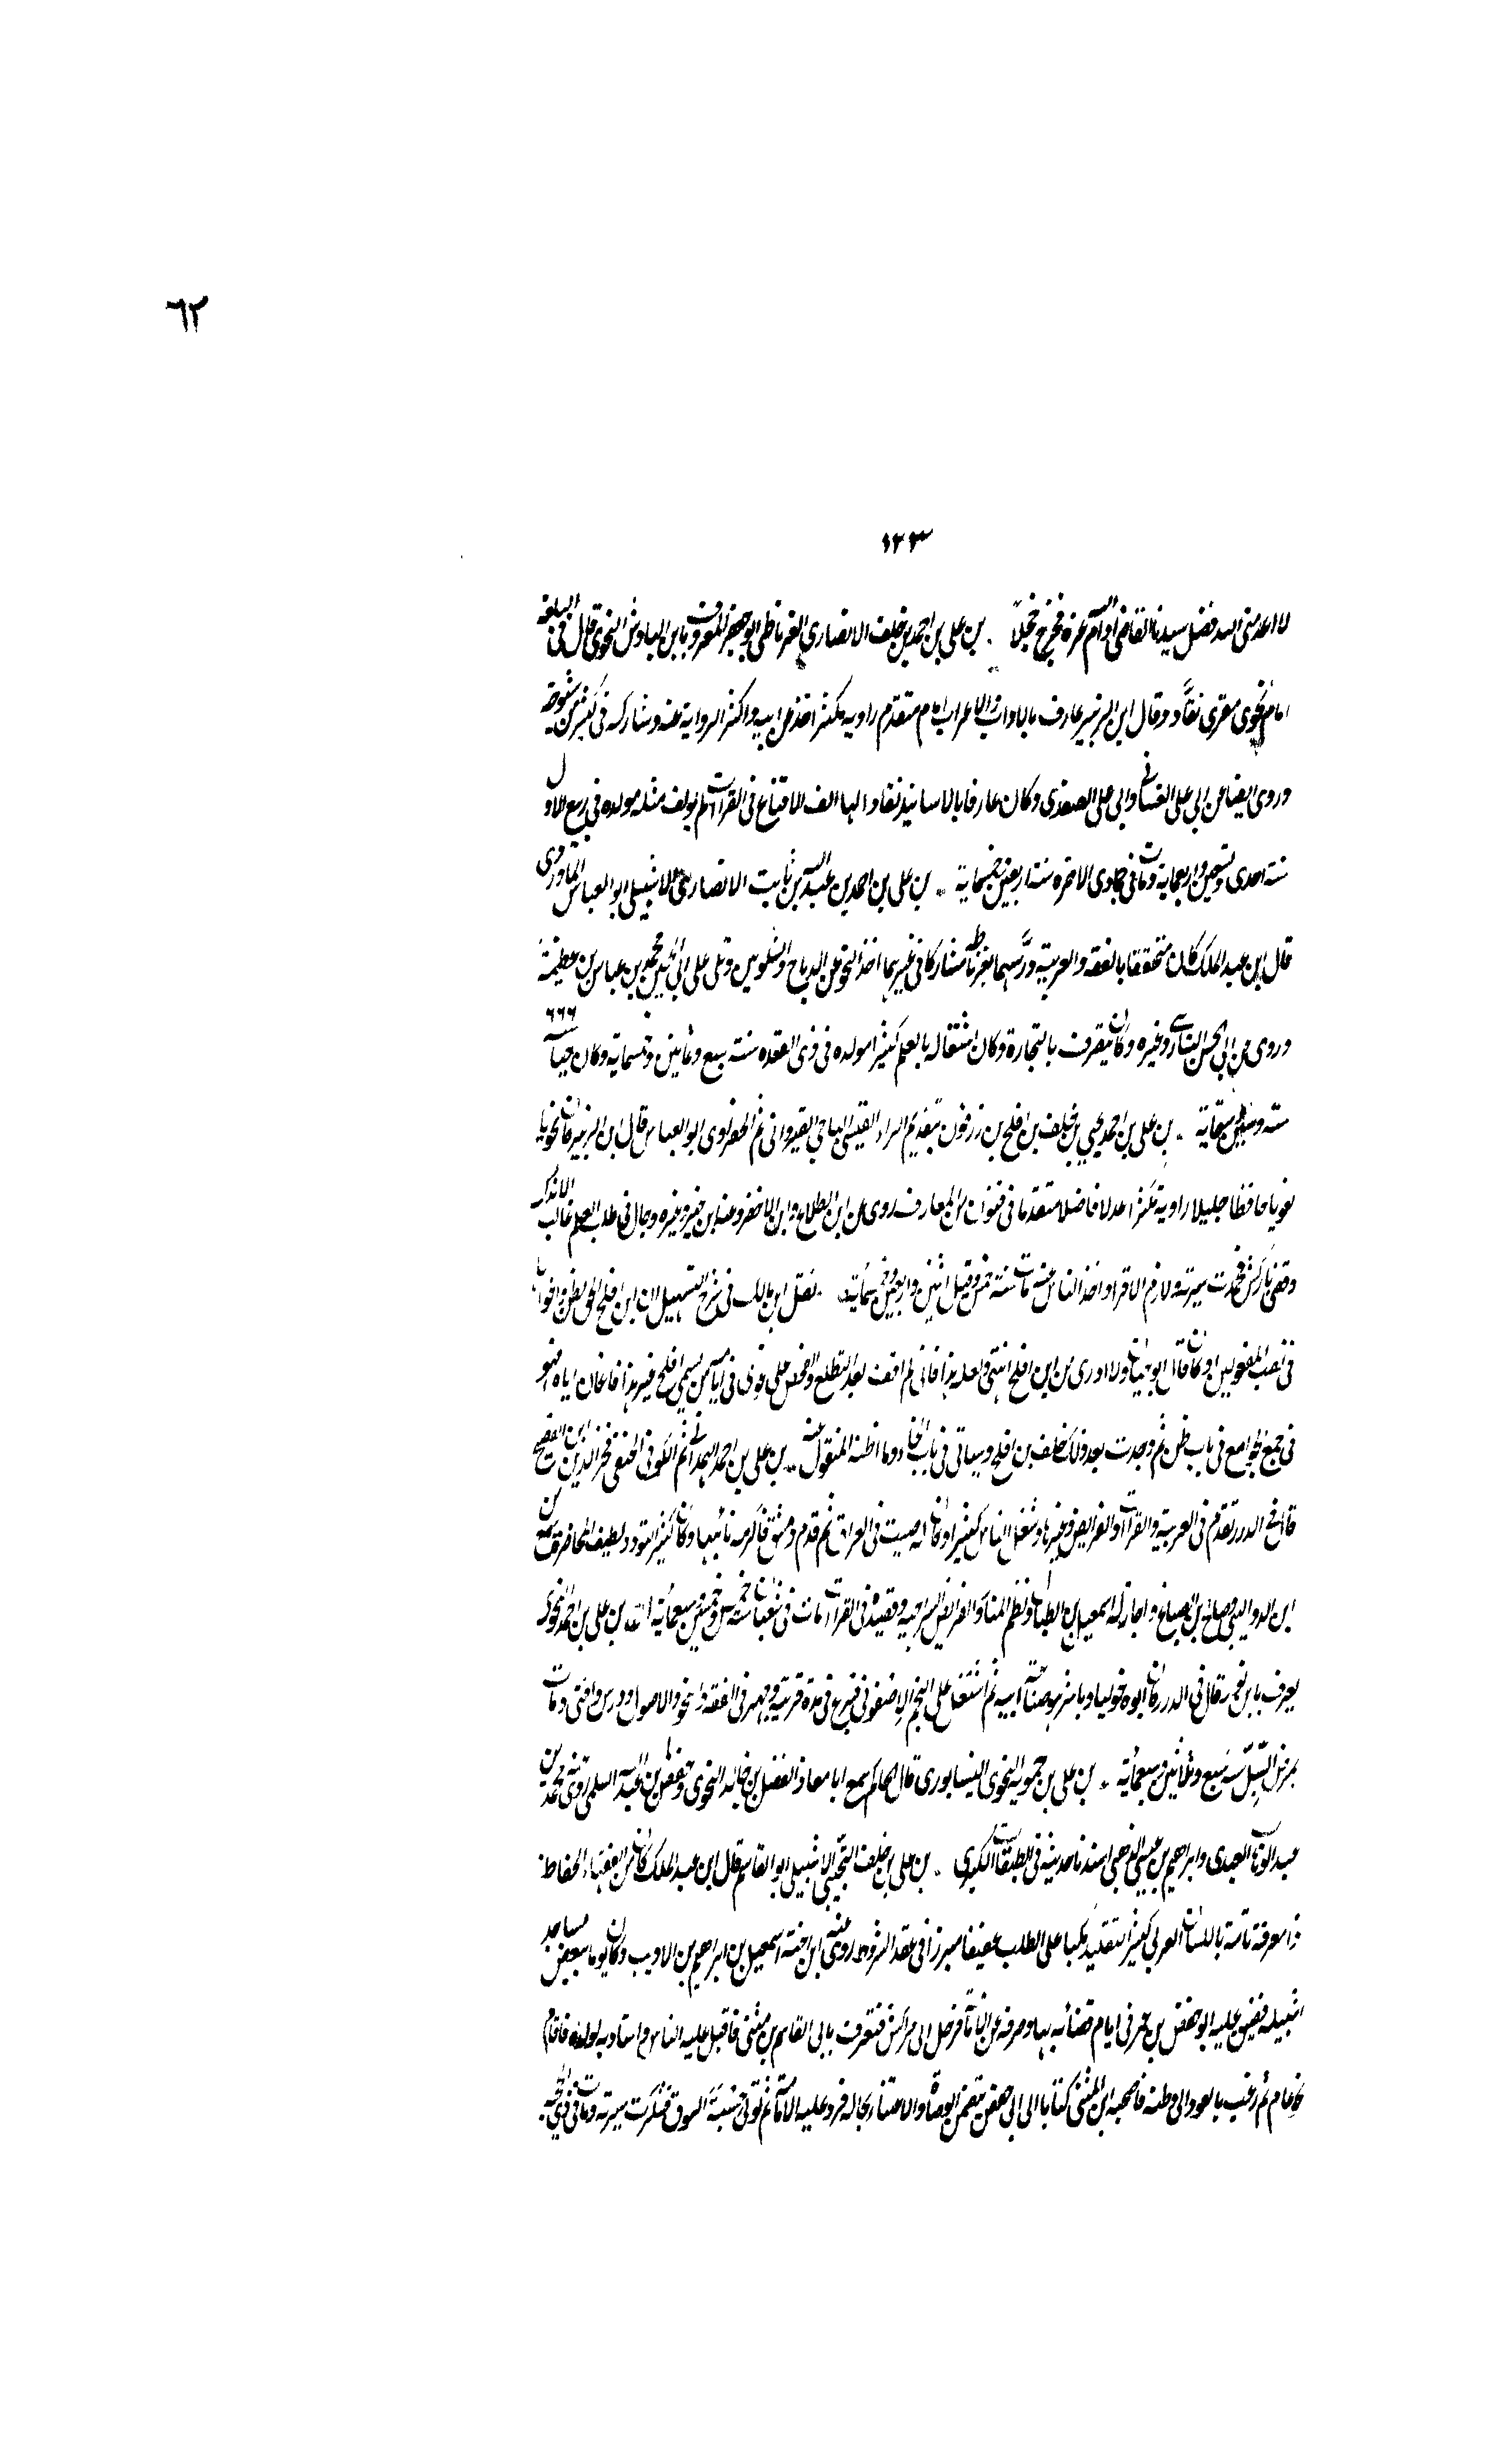 ٦٢
١٢٣
لا اعدمنى الله فضل سيدنا القاضى ادام الله عزه فخرج خجلا . بن على بن احمد بن خلف الانصارى الغرناطى ابو جعفر المعروف بابن الباذش النحوى قال فى البلغة
امام نحوى مقرى نقاد وقال ابن الزبير عارف بالاداب والاعراب امام متقدم راوية مكثر اخذ عن ابيه واكثر الرواية عنه وشاركه فى كثير من شيوخه
وروى ايضا عن ابى على الغسانى وابى على الصفدى وكان عارفا بالاسانيد نقادا لها الف الاقناع فى القراآت لم يولف مثله مولده فى ربيع الاول
سنة احدى وتسعين واربعماية ومات فى جمادى الاخرة سنة اربعين وخمسماية . بن على بن احمد بن عبد الله بن ثابت الانصارى الاشبيلى ابو العباس الماوردى
قال ابن عبد الملك كان متحققا بالفقه والعربية ودرسهما بغرناطة مشاركا فى غيرهما اخذ النحو عن الدباج والشلوبين وتلى على ابى الحسين محمد بن عباس بن عظيمة
وروى عن ابى الحسن الشارى وغيره وكان يتعرف بالتجارة وكان اشتغاله بالعلم كثيرا مولده فى ذى القعده سنة سبع وثمانين وخمسماية وكان حيا سنة ٦٦٦
ستة وستين وستماية . بن على بن احمد بن يحيى بن خلف بن افلح بن رزقون بتقديم الراء القيسى الباجى القيروانى ثم الخضراوى ابو العباس قال ابن الزبير كان نحويا
لغويا حافظا جليلا راوية مكثرا عدلا فاضلا متقدما فى فنون من المعارف روى عن ابن الطلاع وابن الاخضر وعنه ابن خير وغيره وجال فى طلب العلم غالب الاندلس
وقضى باركش فحمدت سيرته ولازم الاقراء واخذ الناس عنه مات سنة خمس وقيل اثنين واربعين وخمسماية . نقل ابن مالك فى شرح التسهيل ان ابن افلح الحق بظن واخواتها
فى نصب المفعولين اوكان قال ابو حيان ولا ادرى من ابن افلح انتهى ولعله هذا فانى لم اقف بعد التطلع والفحص على نحوى فى اباه من يسمى افلح غير هذا فان كان اياه فهو
فى جمع الجوامع فى باب ظن ثم وجدت بعد ذلك خلف بن افلح وسياتى فى باب الخاء وما اظنه المنقول عنه . بن على بن احمد الهمدانى ثم الكوفى الحنفى فخر الدين ابن الفصيح
قال فى الدرر تقدم فى العربية والقراآت والفرايض وغيرها وشغل الناس كثيرا وكان له صيت فى العراق ثم قدم دمشق فاكرمه نائبها وكان كثير التودد لطيف المحاضرة سمع من
ابن الدواليبى وصالح بن الصباغ واجاز له اسمعيل بن الطبال ونظم المنار والفرايض السراجيه وقصيدة فى القراآت مات فى شعبان سنة خمس وخمسين وسبعمائة بن على بن احمد النحوى
يعرف بابن نحر قال فى الدرر كان ابوه خوليا وباشر هو صناعة ابيه ثم اشتغل على النجم الاصفونى فبرع فى مدة قريبة ومهر فى الفقه والنحو والاصول ودرس وافتى ومات
بمرض السل سنة سبع وثمانين وسبعمائة . بن على بن حمويه النحوى النيسابورى قال الحاكم سمع ابا معاذ الفضل بن خالد النحوى وحفص بن عبد الله السلمى روى عنه محمد بن
عبد الوهاب العبدى وابراهيم بن عيسى الذهبى اسندنا حديثه فى الطبقات الكبرى . بن على بن خلف التجيبى الاشبيلى ابو القاسم قال ابن عبد الملك كان من الفقهاء الحفاظ
ذا معرفة تامة باللسان العربى كثير التقييد مكبا على الطلب عفيفا مبرزا فى عقد الشروط روى عنه ابن اخته اسمعيل بن ابراهيم بن الاديب وكان يوم ببعض مساجد
اشبيلة فضيق عليه ابو حفص بن عمر فى ايام قضائه بها وصرفه عن الامامة فرحل الى مراكش فتعرف بابى القاسم بن مثنى فاقبل عليه الناس واستادبه لولده فاقام
نحو عام ثم رغب بالعود الى وطنه فاصحبه ابن المثنى كتابا الى ابى حفص يتضمن الوصاة والاعتناء بحاله فرد عليه الامامة ثم تولى حسبة السوق فشكرت سيرته ومات فى ذى الحجة